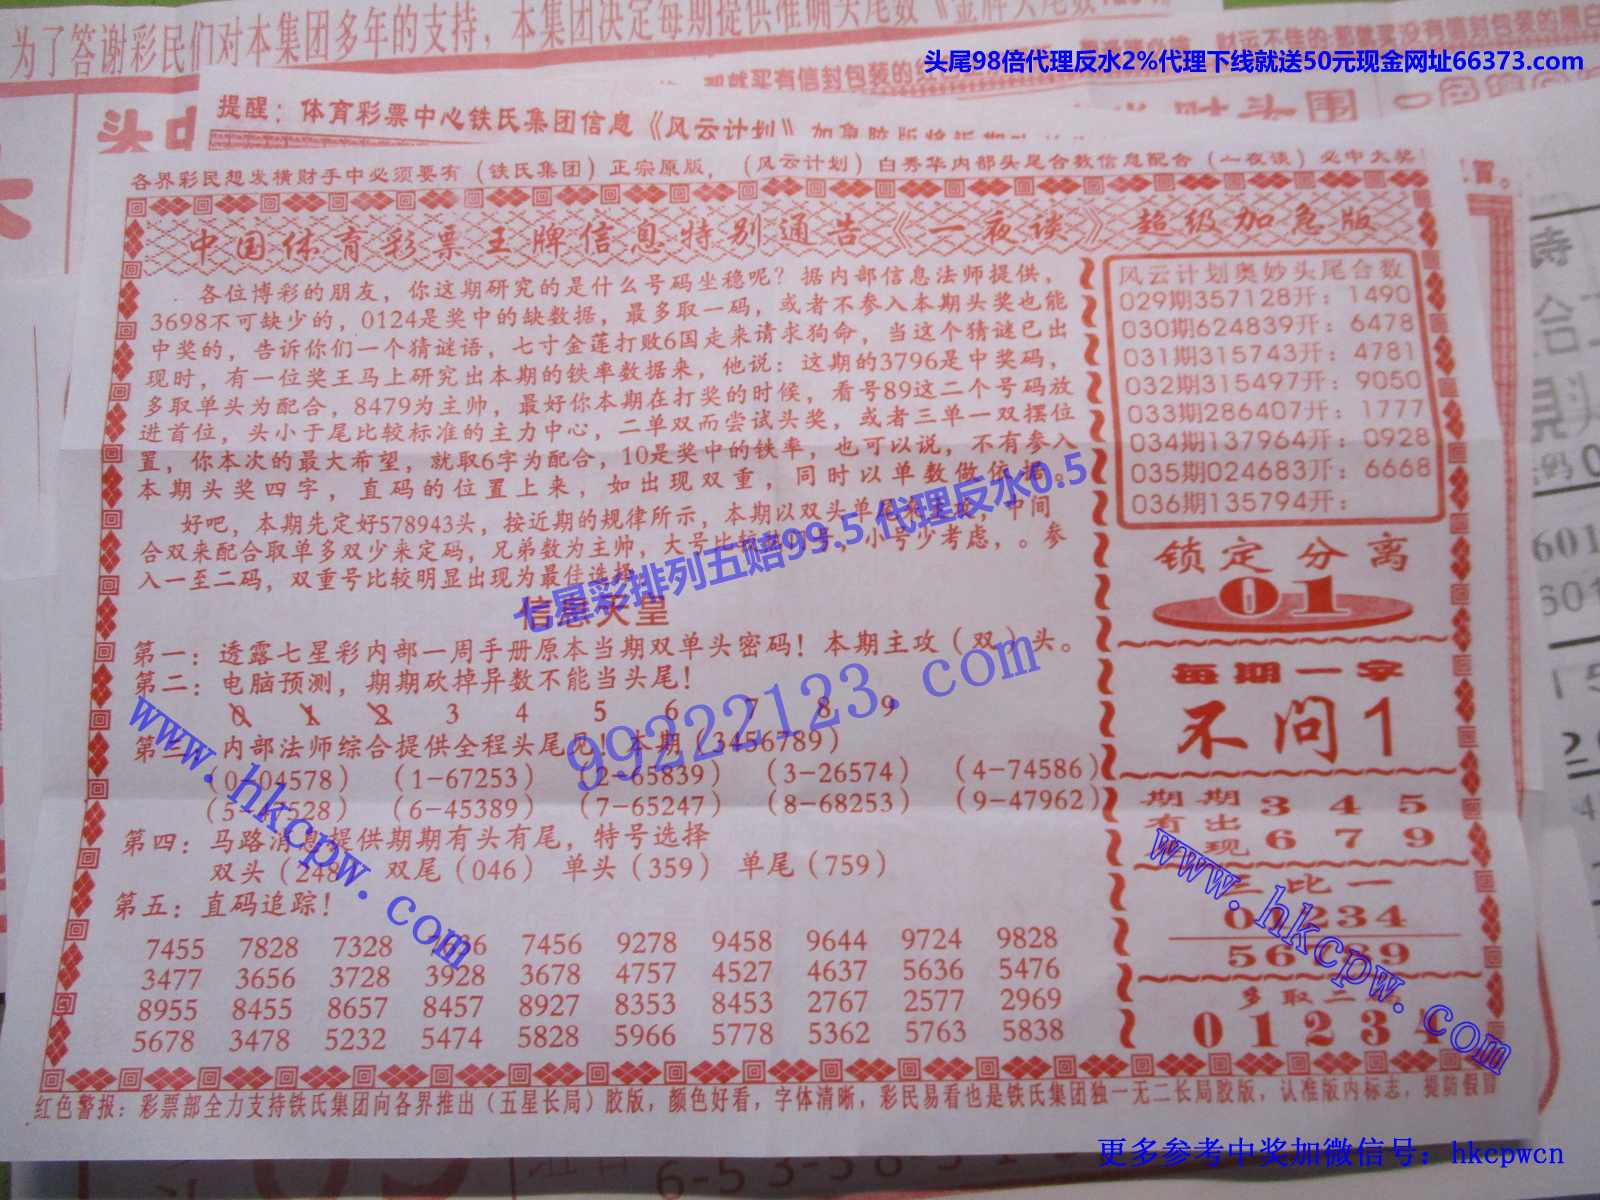 为了答谢彩民们对本集团多年的支持，本集团决定每期提供准确头尾数《金牌头尾数
头尾98倍代理反水2%代理下线就送50元现金网址66373.com
提醒：体育彩票中心铁氏集团信息《风云计划》加急胶版
各界彩民想发横财手中必须要有（铁氏集团）正宗原版，（风云计划）白秀华内部头尾合数信息配合（一夜谈）必中大奖
中国体育彩票王牌信息特别通告《一夜谈》超级加急版
各位博彩的朋友，你这期研究的是什么号码坐稳呢？据内部信息法师提供，
3698不可缺少的，0124是奖中的缺数据，最多取一码，或者不参入本期头奖也能
中奖的，告诉你们一个猜谜语，七寸金莲打败6国走来请求狗命，当这个猜谜已出
现时，有一位奖王马上研究出本期的铁率数据来，他说：这期的3796是中奖码，
多取单头为配合，8479为主帅，最好你本期在打奖的时候，看号89这二个号码放
进首位，头小于尾比较标准的主力中心，二单双而尝试头奖，或者三单一双摆位
置，你本次的最大希望，就取6字为配合，10是奖中的铁率，也可以说，不有参入
本期头奖四字，直码的位置上来，如出现双重，同时以单数做依据。
好吧，本期先定好578943头，按近期的规律所示，本期以双头单尾 中间
合双来配合取单多双少来定码，兄弟数为主帅，大号比较 号，小号少考虑，。参
入一至二码，双重号比较明显出现为最佳选择
七星彩排列五赔99.5 代理反水0.5
信息天皇
第一：透露七星彩内部一周手册原本当期双单头密码！本期主攻（双）头。
第二：电脑预测，期期砍掉异数不能当头尾！
0 1 2 3 4 5 6 7 8 9
第三：内部法师综合提供全程头尾见！本期（3456789）
（0-04578） （1-67253） （2-65839） （3-26574） （4-74586）
（5- 528） （6-45389） （7-65247） （8-68253） （9-47962）
第四：马路消息提供期期有头有尾，特号选择
双头（248 双尾（046） 单头（359） 单尾（759）
第五：直码追踪！
7455 7828 7328 7456 9278 9458 9644 9724 9828
3477 3656 3728 3928 3678 4757 4527 4637 5636 5476
8955 8455 8657 8457 8927 8353 8453 2767 2577 2969
5678 3478 5232 5474 5828 5966 5778 5362 5763 5838
风云计划奥妙头尾合数
029期357128开：1490
030期624839开：6478
031期315743开：4781
032期315497开：9050
033期286407开：1777
034期137964开：0928
035期024683开：6668
036期135794开：
锁定分离
01
每期一字
不问1
期期 3 4 5
有出
现 6 7 9
三比一
01234
56 89
多取二
0 1 2 3 4
www.hkcpw.com
99222123.com
www.hkcpw.com
红色警报：彩票部全力支持铁氏集团向各界推出（五星长局）胶版，颜色好看，字体清晰，彩民易看也是铁氏集团独一无二长局胶版，认准版内标志，提防假冒
更多参考中奖加微信号：hkcpwcn